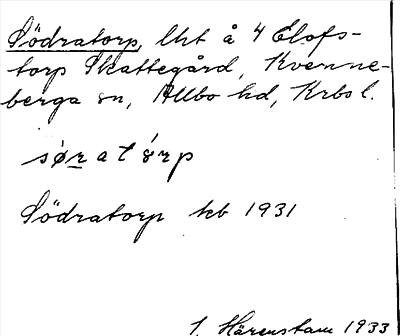 Södratorp, lht å 4 Elofs-
torp Skattegård, Kvenne-
berga sn, Allbo hd, Krbs l.
sǿr a t ó̤rp
Södratorp kb 1931
I. Härenstam 1933